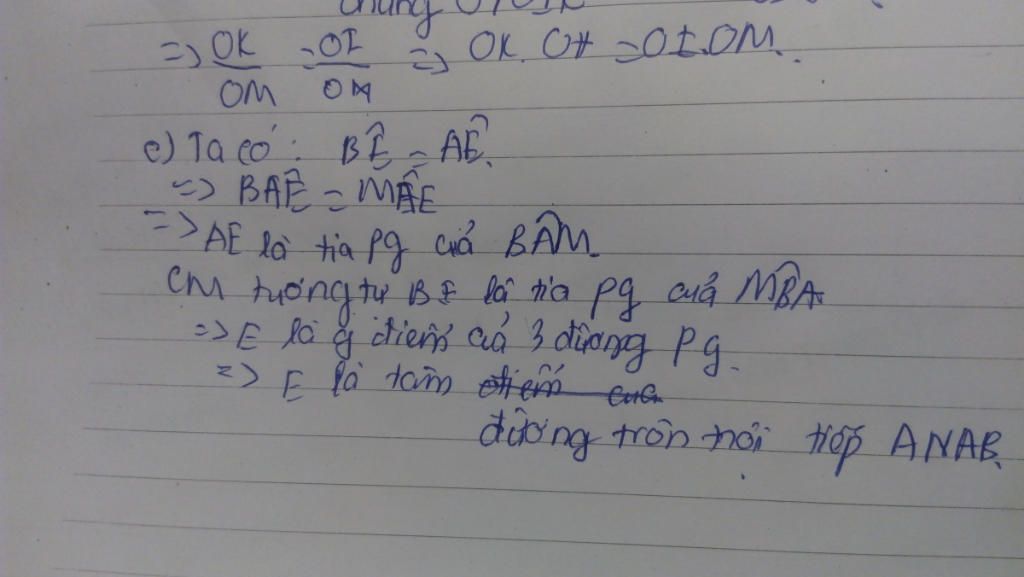 chung
=> OK/OM = OI/OH => OK. OH = OI.OM.
c) Ta có: BÊ = AÊ.
=> BAÊ = MÂE
=> AE là tia pg của BÂM.
CM tương tự BE là tia pg của MB̂A.
=> E là g điểm của 3 đường pg.
=> E là tâm
đường tròn nội tiếp ΔNAB.